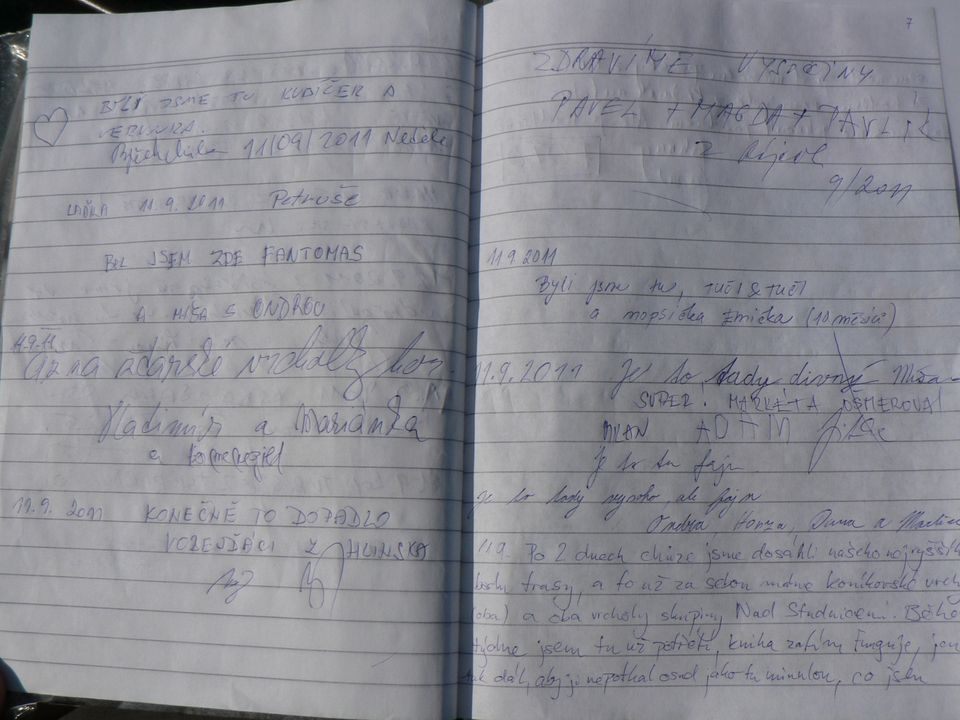 BYLI JSME TU KUDIČER A
VERUNKA.
11/09/2011 Neděle
11.9.2011 Petruše
BYL JSEM ZDE FANTOMAS
A MÍŠA S ONDROU
11.9.11
vrcholky hor.
Vladimír a Mariánka
a
11.9.2011 KONEČNĚ TO DOPADLO
VOZEJŽÁCI Z HLINSKA
7
ZDRAVÍME VYSOČINY
PAVEL + MAGDA + PAVLÍK
z
9/2011
11.9.2011
Byli jsme tu, TUČ1 & TUČ1
a mopsička Zmička (10.měsíců)
11.9.2011 Je to tady divný
SUPER. MARKÉTA OSMEROVÁ
MILAN ADAM
Je to tu fajn.
Je to tady vysoko ale fajn
Ondra, Honza, Dana a
11.9. Po 2 dnech chůze jsme dosáhli našeho nejvyššího
bodu trasy, a to už za sebou máme koníkovské vrchy
(oba) a oba vrcholy skupiny Nad Studnicemi. Během
týdne jsem tu už potřetí, kniha zatím funguje, jen
tak dál, aby ji nepotkal osud jako tu minulou, co jsem